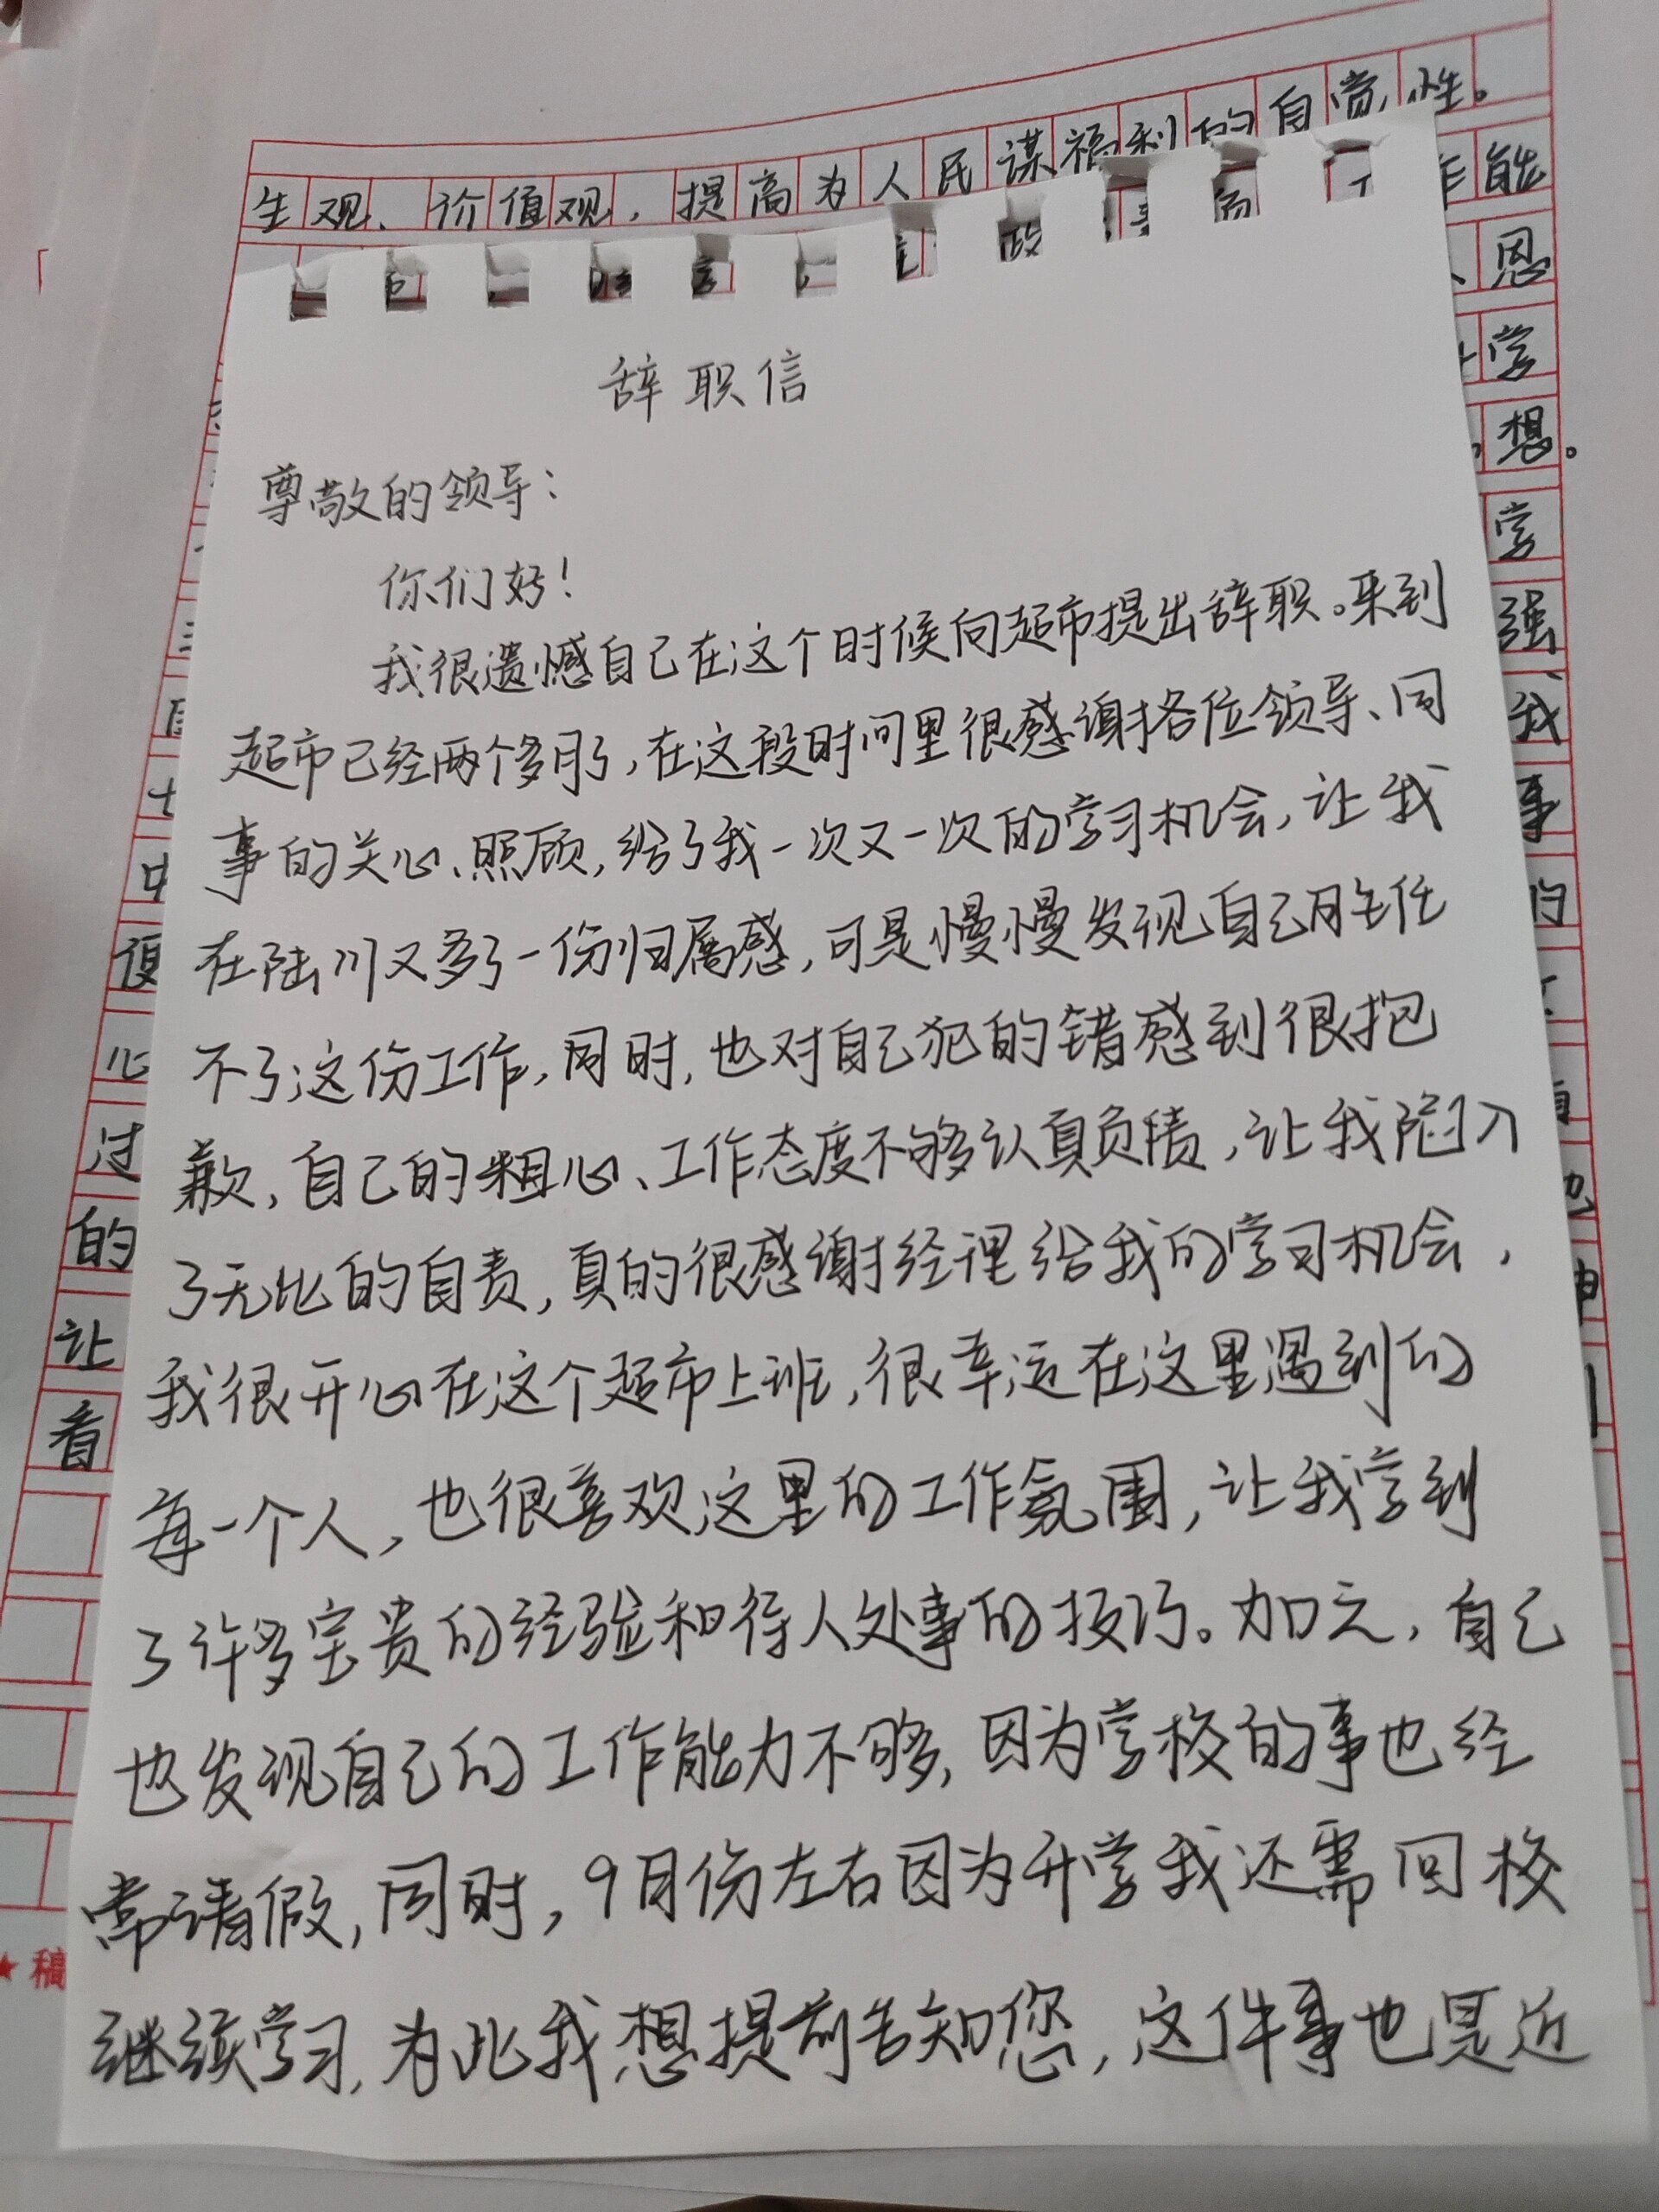 生观、价值观，提高为人民谋福利的自觉性。
能
恩
学
想。
学
强
我
事
的
便
心
过
的
让
看
★稿
辞职信
尊敬的领导：
你们好！
我很遗憾自己在这个时候向超市提出辞职。来到
超市已经两个多月了，在这段时间里很感谢各位领导、同
事的关心、照顾，给了我一次又一次的学习机会，让我
在陆川又多了一份归属感，可是慢慢发现自己胜任
不了这份工作，同时，也对自己犯的错感到很抱
歉，自己的粗心、工作态度不够认真负责，让我陷入
了无比的自责，真的很感谢经理给我的学习机会，
我很开心在这个超市上班，很幸运在这里遇到的
每一个人，也很喜欢这里的工作氛围，让我学到
了许多宝贵的经验和待人处事的技巧。加之，自己
也发现自己的工作能力不够，因为学校的事也经
常请假，同时，9月份左右因为开学我还需回校
继续学习，为此我想提前告知您，这件事也是近